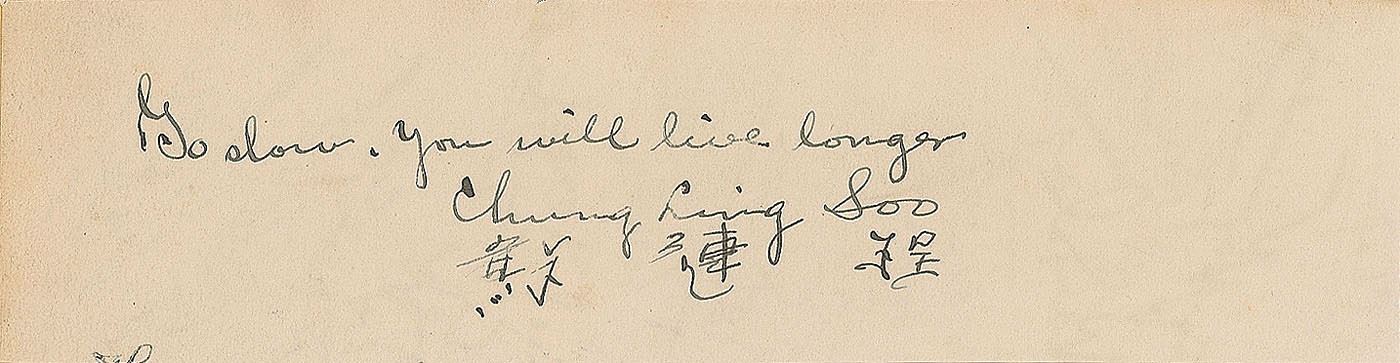 Go slow. You will live longer
Chung Ling Soo
蘇 連 程